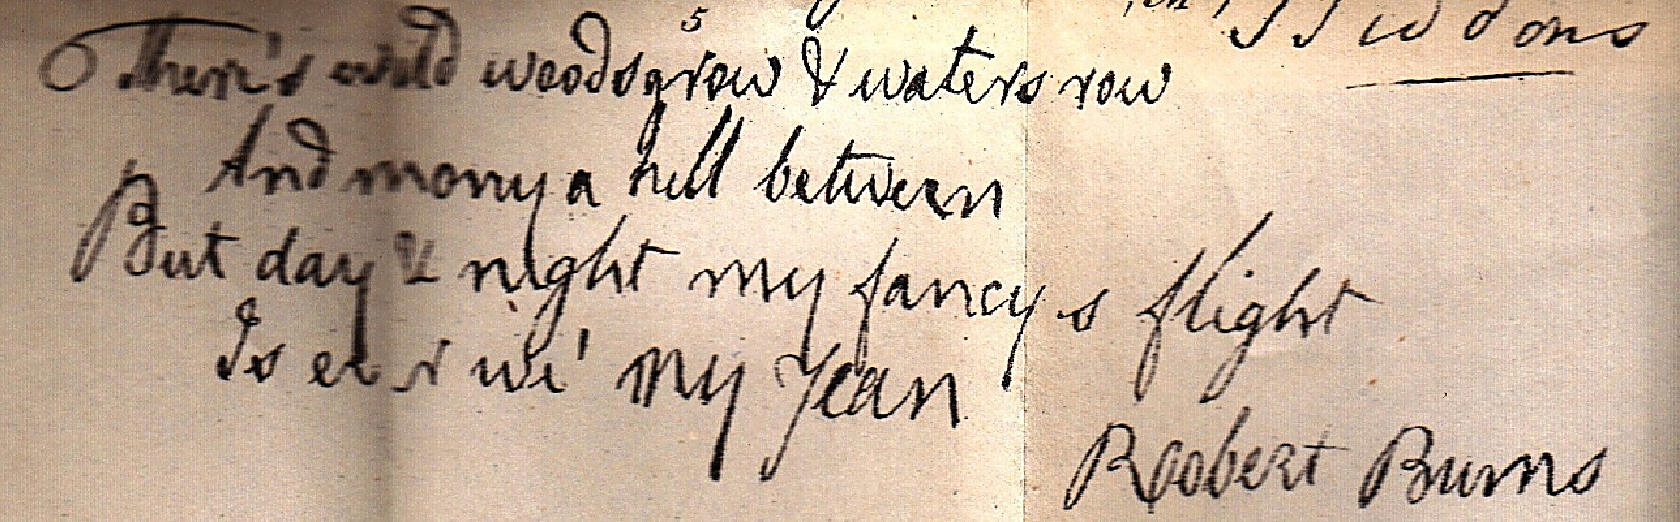 5
Siddons
There's wild woods grow & waters row
And mony a hill between
But day & night my fancy s flight
Is ever wi' my Jean
Robert Burns